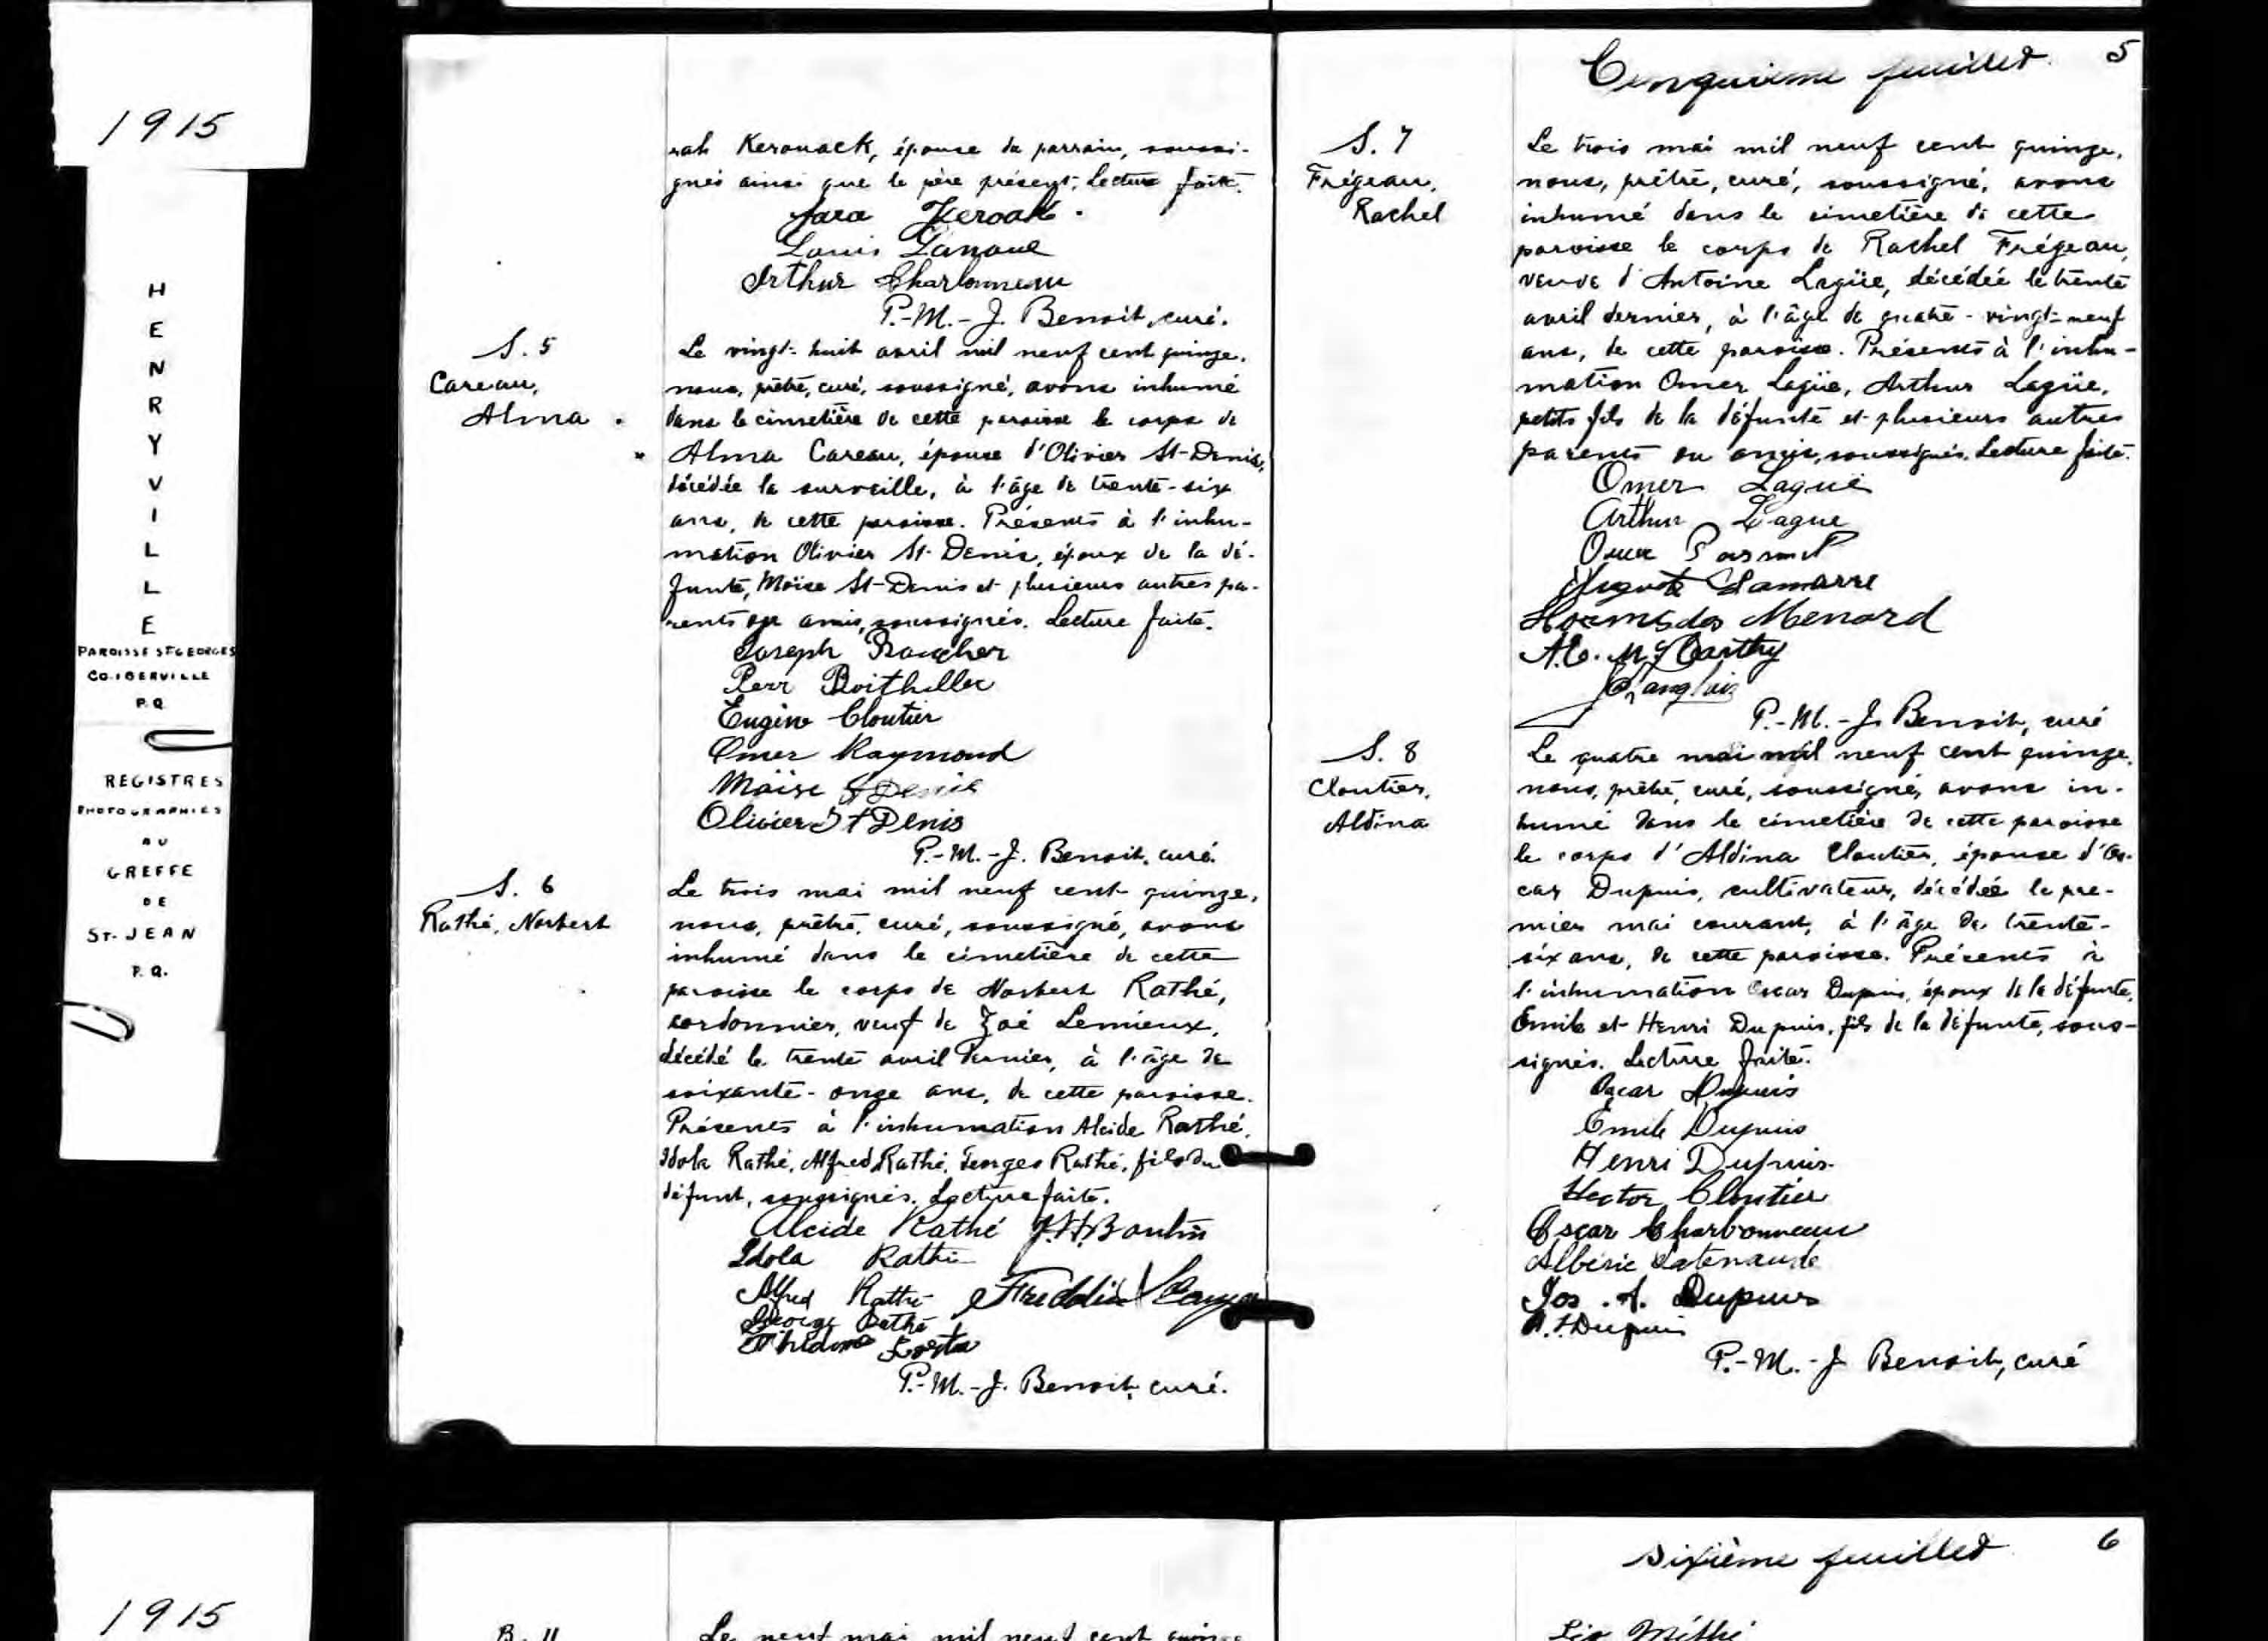 1915
HENRYVILLE
PAROISSE ST GEORGES
CO. IBERVILLE
P.Q.
REGISTRES
PHOTOGRAPHIES
AU
GREFFE
DE
ST. JEAN
P.Q.
rah Kerouack, épouse du parrain, soussi-
gnés ainsi que le père présent. Lecture faite.
Sara Keroak.
Louis Lanoue
Arthur Charbonneau
P.-M.-J. Benoit, curé.
S. 5
Careau,
Alma
Le vingt-huit avril mil neuf cent quinze,
nous, prêtre, curé, soussigné, avons inhumé
dans le cimetière de cette paroisse le corps de
Alma Careau, épouse d'Olivier St-Denis,
décédée la surveille, à l'âge de trente-six
ans, de cette paroisse. Présents à l'inhu-
mation Olivier St-Denis, époux de la dé-
funte, Moïse St-Denis et plusieurs autres pa-
rents ou amis, soussignés. Lecture faite.
Joseph
Eugène Cloutier
Omer Raymond
Moïse St Denis
Olivier St Denis
P.-M.-J. Benoit, curé.
S. 6
Rathé, Norbert
Le trois mai mil neuf cent quinze,
nous, prêtre, curé, soussigné, avons
inhumé dans le cimetière de cette
paroisse le corps de Norbert Rathé,
cordonnier, veuf de Zoé Lemieux,
décédé le trente avril dernier, à l'âge de
soixante-onze ans, de cette paroisse.
Présents à l'inhumation Alcide Rathé,
Idola Rathé, Alfred Rathé, Georges Rathé, fils du
défunt, soussignés. Lecture faite.
Alcide Rathé J.H. Boutin
Idola Rathé
Alfred Rathé Freddie
George Rathé
P.-M.-J. Benoit, curé.
Cinquième feuillet 5
S. 7
Frégeau,
Rachel
Le trois mai mil neuf cent quinze,
nous, prêtre, curé, soussigné, avons
inhumé dans le cimetière de cette
paroisse le corps de Rachel Frégeau,
veuve d'Antoine Lagüe, décédée le trente
avril dernier, à l'âge de quatre-vingt-neuf
ans, de cette paroisse. Présents à l'inhu-
mation Omer Lagüe, Arthur Lagüe,
petits fils de la défunte et plusieurs autres
parents ou amis, soussignés. Lecture faite.
Omer Lagüe
Arthur Lague
Omer
Auguste Lamarre
Hormisdas Menard
A.E. McCarthy
Langlois
P.-M.-J. Benoit, curé
S. 8
Cloutier,
Aldina
Le quatre mai mil neuf cent quinze,
nous, prêtre, curé, soussigné, avons in-
humé dans le cimetière de cette paroisse
le corps d'Aldina Cloutier, épouse d'Os-
car Dupuis, cultivateur, décédée le pre-
mier mai courant, à l'âge de trente-
six ans, de cette paroisse. Présents à
l'inhumation Oscar Dupuis, époux de la défunte,
Emile et Henri Dupuis, fils de la défunte, sous-
signés. Lecture faite.
Oscar Dupuis
Emile Dupuis
Henri Dupuis
Hector Cloutier
Oscar Charbonneau
Albéric Latenaude
Jos. A. Dupuis
Dupuis
P.-M.-J. Benoit, curé
1915
B. 11
Le neuf mai mil neuf cent quinze
sixième feuillet 6